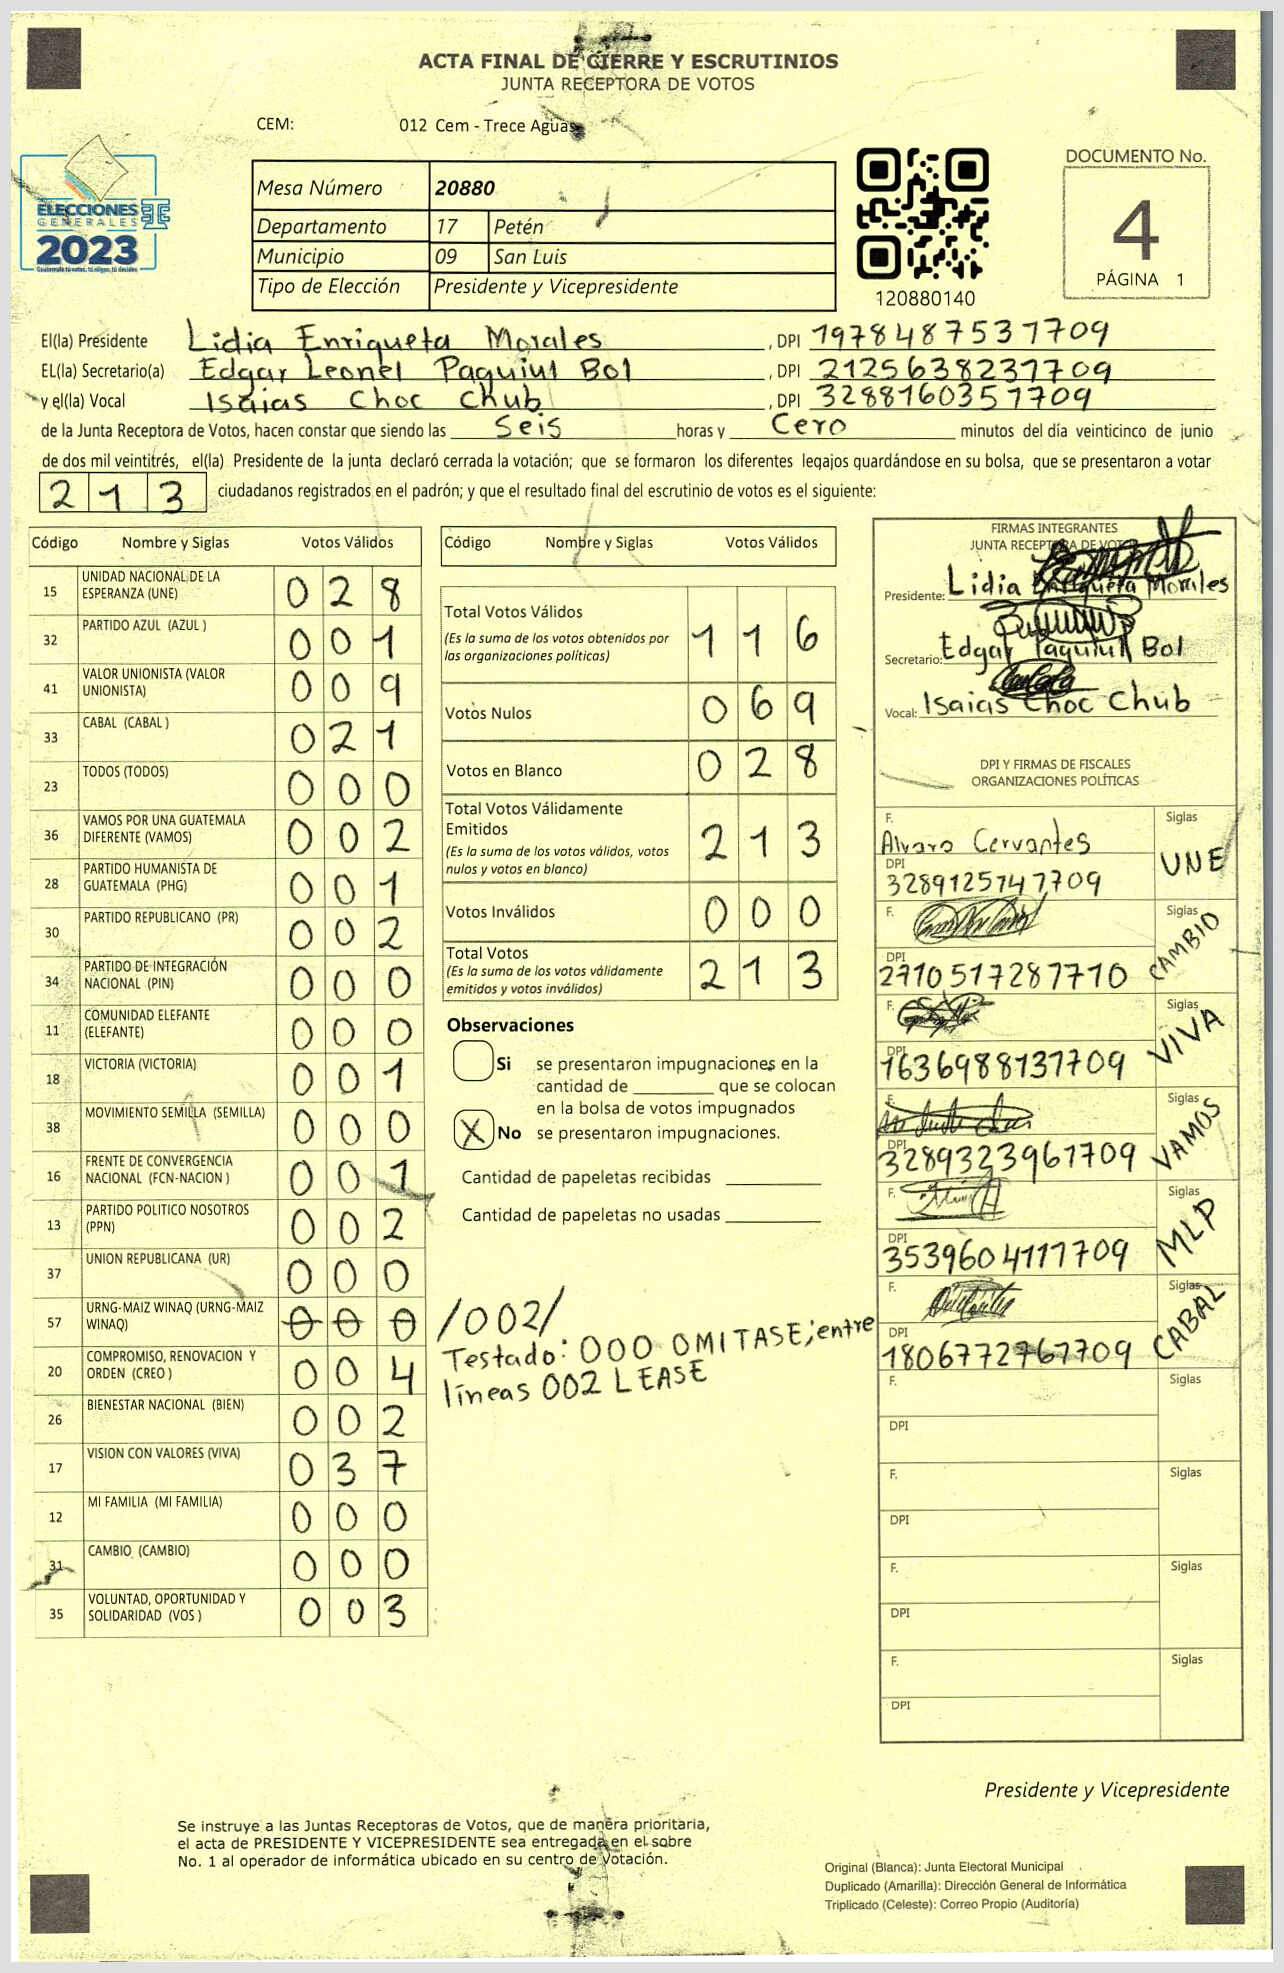 ACTA FINAL DE CIERRE Y ESCRUTINIOS
JUNTA RECEPTORA DE VOTOS
CEM: 012 Cem - Trece Aguas
ELECCIONES
GENERALES
2023
Guatemala tú votas, tú eliges, tú decides
Mesa Número 20880
Departamento 17 Petén
Municipio 09 San Luis
Tipo de Elección Presidente y Vicepresidente
120880140
DOCUMENTO No.
4
PÁGINA 1
El(la) Presidente Lidia Enriqueta Morales , DPI 1978487531709
EL(la) Secretario(a) Edgar Leonel Paquiul Bol , DPI 2125638231709
y el(la) Vocal Isaias Choc Chub , DPI 3288160351709
de la Junta Receptora de Votos, hacen constar que siendo las Seis horas y Cero minutos del día veinticinco de junio
de dos mil veintitrés, el(la) Presidente de la junta declaró cerrada la votación; que se formaron los diferentes legajos guardándose en su bolsa, que se presentaron a votar
213 ciudadanos registrados en el padrón; y que el resultado final del escrutinio de votos es el siguiente:
Código Nombre y Siglas Votos Válidos
15 UNIDAD NACIONAL DE LA ESPERANZA (UNE) 028
32 PARTIDO AZUL (AZUL ) 001
41 VALOR UNIONISTA (VALOR UNIONISTA) 009
33 CABAL (CABAL ) 021
23 TODOS (TODOS) 000
36 VAMOS POR UNA GUATEMALA DIFERENTE (VAMOS) 002
28 PARTIDO HUMANISTA DE GUATEMALA (PHG) 001
30 PARTIDO REPUBLICANO (PR) 002
34 PARTIDO DE INTEGRACIÓN NACIONAL (PIN) 000
11 COMUNIDAD ELEFANTE (ELEFANTE) 000
18 VICTORIA (VICTORIA) 001
38 MOVIMIENTO SEMILLA (SEMILLA) 000
16 FRENTE DE CONVERGENCIA NACIONAL (FCN-NACION ) 001
13 PARTIDO POLITICO NOSOTROS (PPN) 002
37 UNION REPUBLICANA (UR) 000
57 URNG-MAIZ WINAQ (URNG-MAIZ WINAQ) 000
20 COMPROMISO, RENOVACION Y ORDEN (CREO ) 004
26 BIENESTAR NACIONAL (BIEN) 002
17 VISION CON VALORES (VIVA) 037
12 MI FAMILIA (MI FAMILIA) 000
31 CAMBIO (CAMBIO) 000
35 VOLUNTAD, OPORTUNIDAD Y SOLIDARIDAD (VOS ) 003
Código Nombre y Siglas Votos Válidos
Total Votos Válidos 116
(Es la suma de los votos obtenidos por
las organizaciones políticas)
Votos Nulos 069
Votos en Blanco 028
Total Votos Válidamente
Emitidos 213
(Es la suma de los votos válidos, votos
nulos y votos en blanco)
Votos Inválidos 000
Total Votos 213
(Es la suma de los votos válidamente
emitidos y votos inválidos)
Observaciones
Si se presentaron impugnaciones en la
cantidad de ________ que se colocan
en la bolsa de votos impugnados
X No se presentaron impugnaciones.
Cantidad de papeletas recibidas
Cantidad de papeletas no usadas
/002/
Testado: 000 OMITASE; entre
líneas 002 LEASE
FIRMAS INTEGRANTES
JUNTA RECEPTORA DE VOTOS
Presidente: Lidia Enriqueta Morales
Secretario: Edgar Paquiul Bol
Vocal: Isaias Choc Chub
DPI Y FIRMAS DE FISCALES
ORGANIZACIONES POLÍTICAS
F. Alvaro Cervantes Siglas UNE
DPI 3289125741709
F. Siglas CAMBIO
DPI 2710517281710
F. Siglas VIVA
DPI 1636988131709
F. Siglas VAMOS
DPI 3289323961709
F. Siglas MLP
DPI 3539604111709
F. Siglas CABAL
DPI 1806772761709
F. Siglas
DPI
F. Siglas
DPI
F. Siglas
DPI
F. Siglas
DPI
Presidente y Vicepresidente
Se instruye a las Juntas Receptoras de Votos, que de manera prioritaria,
el acta de PRESIDENTE Y VICEPRESIDENTE sea entregada en el sobre
No. 1 al operador de informática ubicado en su centro de Votación.
Original (Blanca): Junta Electoral Municipal
Duplicado (Amarilla): Dirección General de Informática
Triplicado (Celeste): Correo Propio (Auditoría)